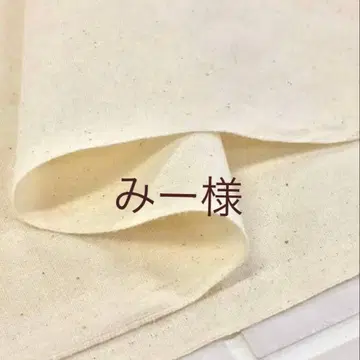 みー様